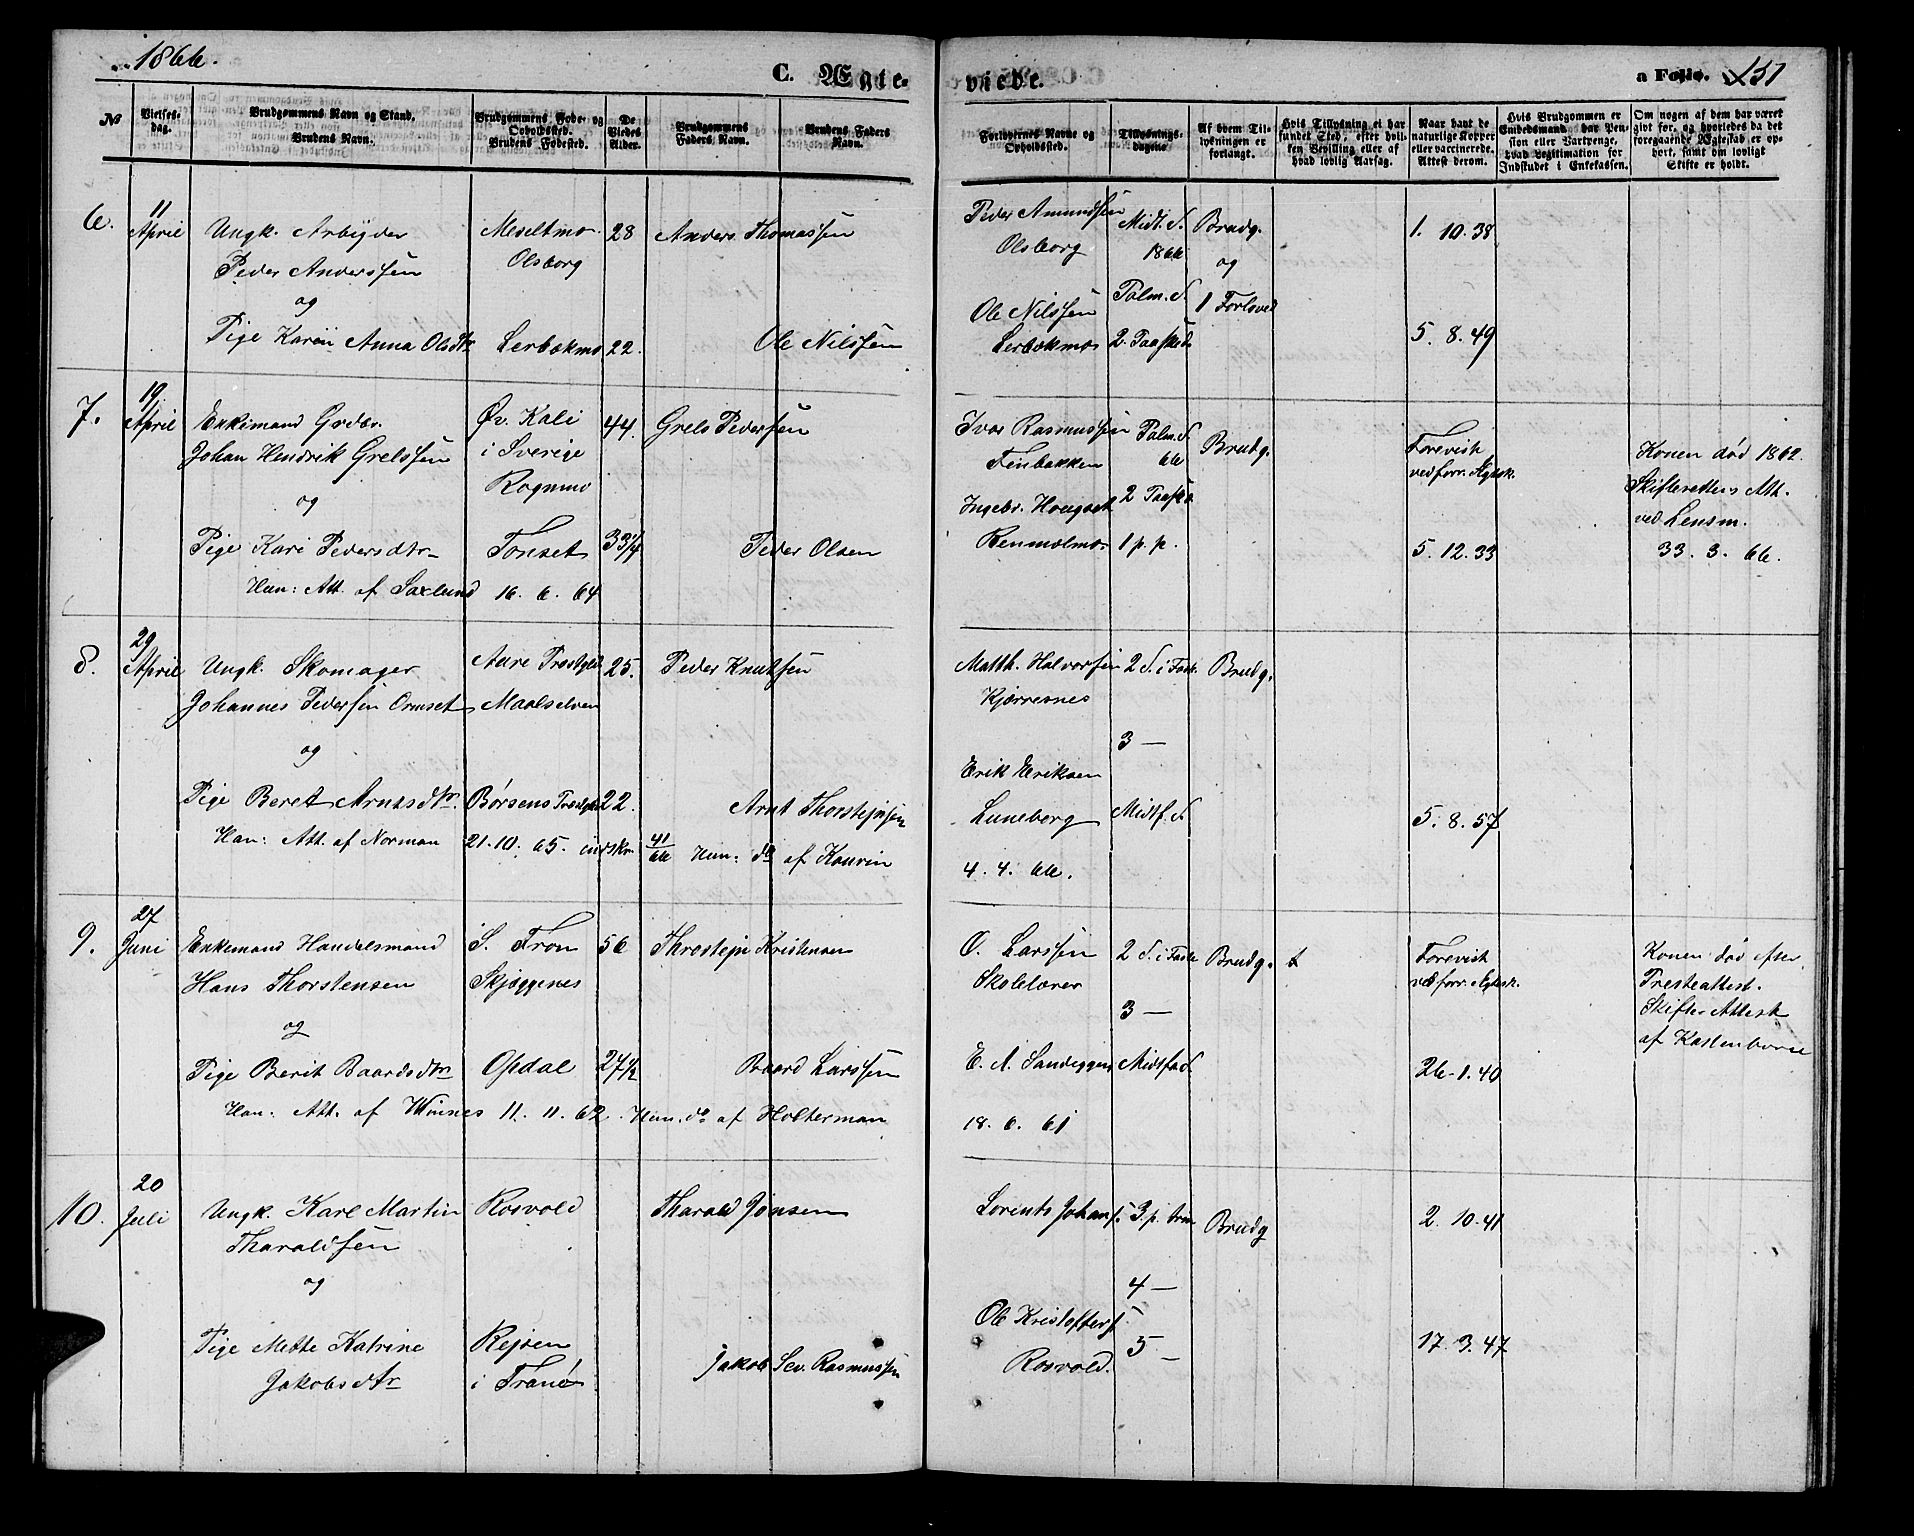 1866.
C. Ægte-
viede.
a Folio. 151
No
Vielses-
dag.
Brudgommens Navn og Stand.
Brudens Navn.
Brudgommens Føde- og
Opholdssted.
Brudens Fødested.
De
Viedes
Alder.
Brudgommens
Faders Navn.
Brudens Faders
Navn.
Forlovernes Navne og
Opholdssted.
Tillysnings-
dagene
Af hvem Til-
lysningen er
forlangt.
Hvis Tillysning ei har
fundet Sted, efter hvil-
ken Bevilling eller af
hvad lovlig Aarsag.
Naar havt de
naturlige Kopper
eller vaccinerede.
Attest derom.
Hvis Brudgommen er
Embedsmand, har Pen-
sion eller Vartpenge,
hvad Legitimation for
Indskudet i Enkekassen.
Om nogen af dem har været
givt før, og hvorledes da det
foregaaende Ægteskab er op-
hørt, samt om lovligt
Skifte er holdt.
6.
11
April
Ungk. Arbejder
Peder Anderssen
og
Pige Karen Anna Olsdtr
Meseltmo
Olsborg
Lerbækmo
28
22.
Anders Thomassen
Ole Nilssen
Peder Amundsen
Olsborg
Ole Nilssen
Lerbækmo
Midf. S.
1866
Palm. S.
2 Paasked
Brudg.
og
1 Forloved
1. 10. 38
5. 8. 49
7.
19
April
Enkemand Grdbr.
Johan Hendrik Grelssen
og
Pige Kari Pedersdtr
Hun: Att. af Saxlund
Øv. Kali
i Sverige
Rognmo
Tønset
16. 6. 64
44.
33 1/4
Grels Pedersen
Peder Olsen
Ivar Rasmussen
Finbakken
Ingebr. Hougset
Renmolmo
Palm. S.
66
2 Paaskd
1 p. p.
Brudg.
Forevist
ved forr. Ægtesk.
5. 12. 33
Konen død 1862.
Skifterettens Att.
ved Lensm.
33. 3. 66.
8.
29
April
Ungk. Skomager
Johannes Pedersen Ormset
og
Pige Beret Arntsdtr.
Han: Att. af Norman
Aure Prestgld
Maalselven
Børsens Prestgld
21. 10. 65. indskr.
25.
22.
41/66
Peder Knutsen
Arnt Thorstejnsen
Hun: do af Kaurin
Matth. Halvorsen
Kjærresnes
Erik Eriksen
Luneborg
4. 4. 66.
2 S. i Faste
3 —
Midf. S.
Brudg.
5. 8. 57
9.
27
Juni
Enkemand Handelsmand
Hans Thorstensen
og
Pige Berit Baardsdtr
Han: Att. af Winsnes
S. Fron
Skjæggenes
Opdal
11. 11. 62.
56
27 1/2
Throstejn Kristensen
Baard Larssen
Hun: do af Holterman
O. Larssen
Skolelærer
E. N. Sandeggen
18. 6. 61
2 S. i Faste
3 —
Midfas.
Brudg.
Forevist
ved forr. Ægtesk.
26. 1. 40
Konen død efter
Presteattest.
Skifte Attest
af Kastenborre
10.
20
Juli
Ungk. Karl Martin
Tharaldsen
og
Pige Mette Katrine
Jakobsdtr
Rosvold
Rejsen
i Tranø
Tharald Jonsen
Jakob Sev. Rasmussen
Lorents Johans.
Ole Kristoffers.
Rosvold.
3. p. trin
4 —
5 —
Brudg
2. 10. 41
17. 3. 47